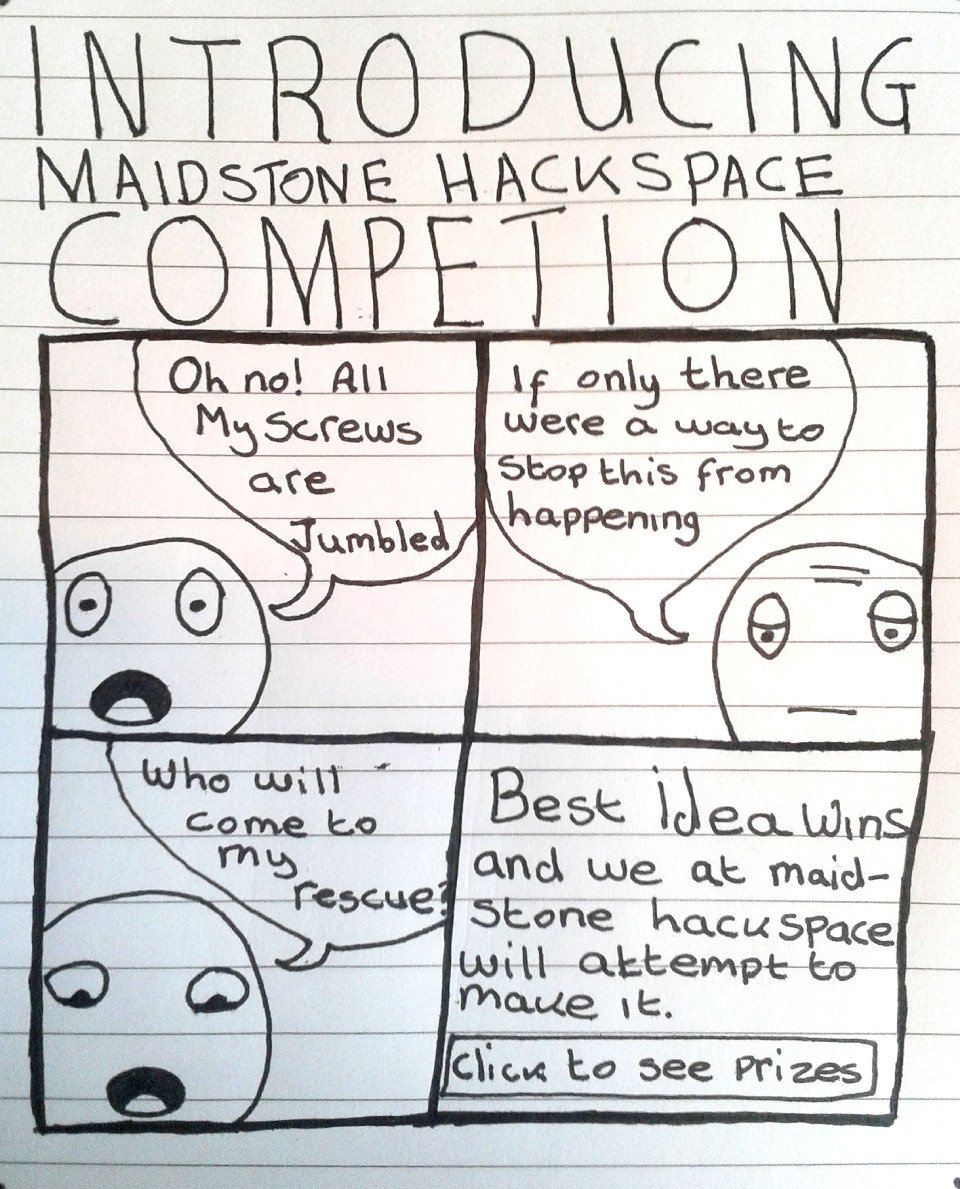 INTRODUCING
MAIDSTONE HACKSPACE
COMPETION
Oh no! All
My Screws
are
Jumbled
If only there
were a way to
Stop this from
happening
Who will
come to
my
rescue?
Best Idea Wins
and we at maid-
stone hackspace
will attempt to
make it.
Click to see prizes